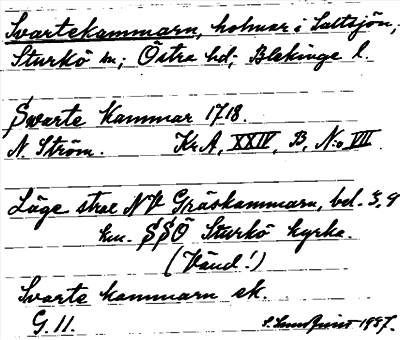 Svartekammarn, holmar i Saltsjön,
Sturkö sn; Östra hd; Blekinge l.
Swarte Kammar 1718.
N. Ström. Kr. A, XXIV, B, No VII
Läge strax NV Gräskammarn, bel. 3,9
km. SSÖ Sturkö kyrka.
(Vänd!)
Svarte kammarn ek.
G. 11. 1937.